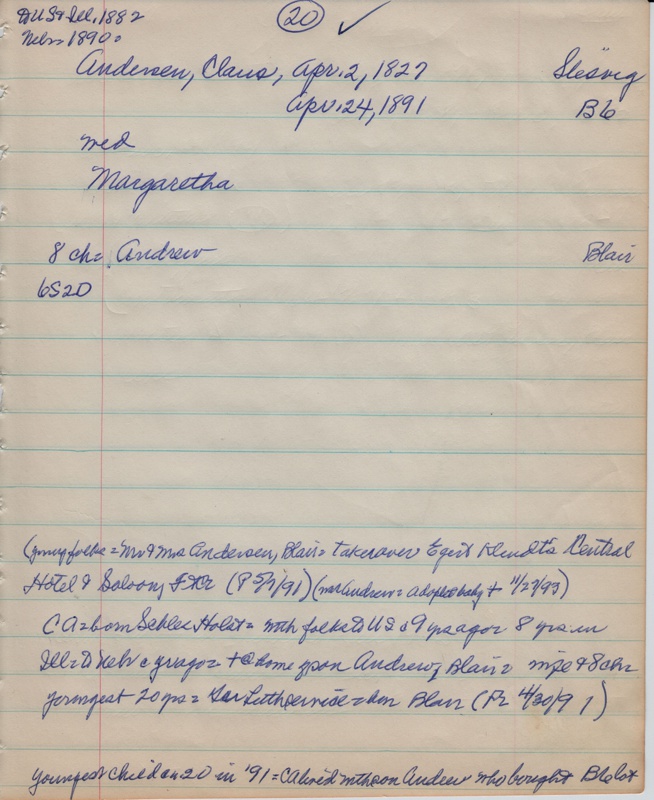 DUS & Ill, 1882
Nebr 1890=
20 ✓
Andersen, Claus, Apr. 2, 1827 Slesvig
Apr. 24, 1891 Blc
med
Margaretha
8 ch= Andrew Blair
6S2D
(young folks = Mr & Mrs Andersen, Blair = take over Egert Central
Hotel & Saloon, (P 5/1/91) (Mr Andrew = adopted baby + 11/27/93)
CA = born Holst = with folks D US 9 yrs ago = 8 yrs in
Ill = D Nebr yr ago = + @ home son Andrew, Blair = wife & 8 chn
youngest 20 yrs = Luth service = Blair (P 4/30/91)
youngest child an 20 in '91 = CA lived with son Andrew who bought Blc lot